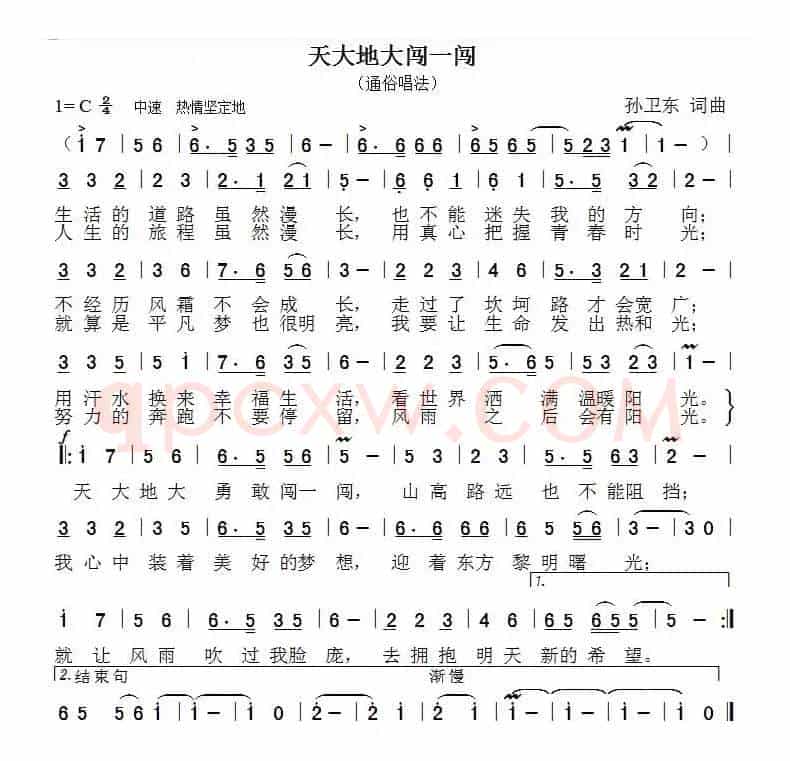 天大地大闯一闯
（通俗唱法）
1= C 2/4 中速 热情坚定地 孙卫东 词曲
（ i 7 | 5 6 | 6· 5 3 5 | 6 - | 6· 6 6 6 | 6 5 6 5 | 5 2 3 1 | 1 - ）|
3 3 2 | 2 3 | 2· 1 2 1 | 5 - | 6 6 1 | 6 1 | 5· 5 3 | 2 - |
生 活 的 道 路 虽 然 漫 长， 也 不 能 迷 失 我 的 方 向；
人 生 的 旅 程 虽 然 漫 长， 用 真 心 把 握 青 春 时 光；
3 3 2 | 3 6 | 7· 6 5 6 | 3 - | 2 2 3 | 4 6 | 5· 3 2 1 | 2 - |
不 经 历 风 霜 不 会 成 长， 走 过 了 坎 坷 路 才 会 宽 广；
就 算 是 平 凡 梦 也 很 明 亮， 我 要 让 生 命 发 出 热 和 光；
3 3 5 | 5 i | 7· 6 3 5 | 6 - | 2 2 3 | 5· 6 | 5 3 2 3 | 1 - |
用 汗 水 换 来 幸 福 生 活， 看 世 界 洒 满 温 暖 阳 光。
努 力 的 奔 跑 不 要 停 留， 风 雨 之 后 会 有 阳 光。
qpcxw.com
f
‖: i 7 | 5 6 | 6· 5 5 6 | 5 - | 5 3 | 2 3 | 5· 6 5 3 | 2 - |
天 大 地 大 勇 敢 闯 一 闯， 山 高 路 远 也 不 能 阻 挡；
3 3 2 | 2 3 | 6· 5 3 5 | 6 - | 6 6 i | 6 5 | 6 5 5 6 | 3 - | 3 0 |
我 心 中 装 着 美 好 的 梦 想， 迎 着 东 方 黎 明 曙 光；
1.
i 7 | 5 6 | 6· 5 3 5 | 6 - | 2 2 3 | 4 6 | 6 5 6 5 5 | 5 - :‖
就 让 风 雨 吹 过 我 脸 庞， 去 拥 抱 明 天 新 的 希 望。
2. 结束句 渐慢
6 5 5 6 i | i - | i 0 | 2 - | 2 i | 2 - | i - | i - | i - | i 0 ‖